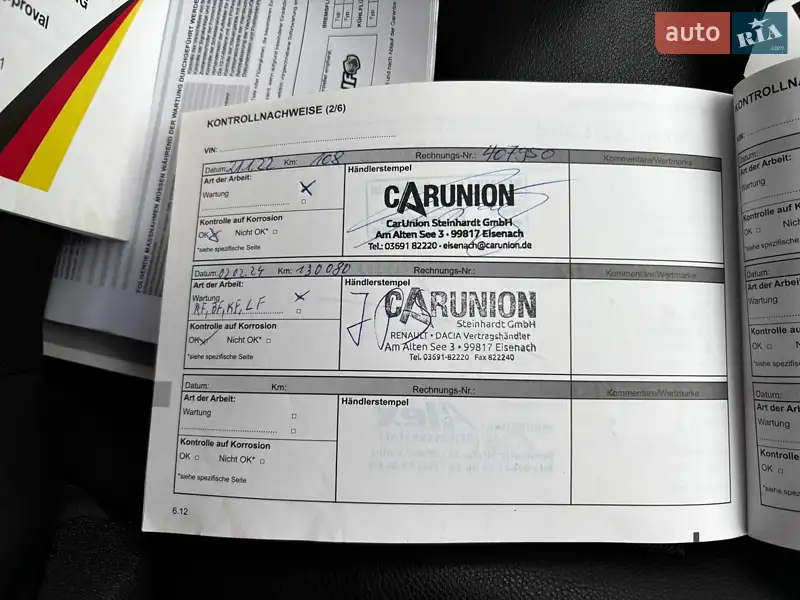 auto RIA
.com
proval
KONTROLLNACHWEISE (2/6)
VIN:
Datum: 21.1.22 Km: 108 Rechnungs-Nr.: 407950 Kommentare/Wertmarke
Art der Arbeit: Händlerstempel
Wartung
CARUNION
CarUnion Steinhardt GmbH
Am Alten See 3 • 99817 Eisenach
Tel.: 03691 82220 • eisenach@carunion.de
Kontrolle auf Korrosion
OK Nicht OK*
*siehe spezifische Seite
Datum: 02.02.24 Km: 130080 Rechnungs-Nr.: Kommentare/Wertmarke
Art der Arbeit: Händlerstempel
Wartung
RF, BF, KF, LF
CARUNION
Steinhardt GmbH
RENAULT • DACIA Vertragshändler
Am Alten See 3 • 99817 Eisenach
Tel. 03691-82220 Fax 822240
Kontrolle auf Korrosion
OK Nicht OK*
*siehe spezifische Seite
Datum: Km: Rechnungs-Nr.: Kommentare/Wertmarke
Art der Arbeit: Händlerstempel
Wartung
Kontrolle auf Korrosion
OK Nicht OK*
*siehe spezifische Seite
6.12
FOLGENDE MASSNAHMEN MÜSSEN WÄHREND DER WARTUNG DURCHGEFÜHRT WERDEN
KONTROLLNA
VIN:
Datum:
Art der Arbeit:
Wartung
Kontrolle auf K
OK
*siehe spezifisc
Datum:
Art der Arbeit
Wartung
Kontrolle auf
OK
*siehe spezifis
Datum:
Art der Art
Wartung
Kontrolle
OK
*siehe spez